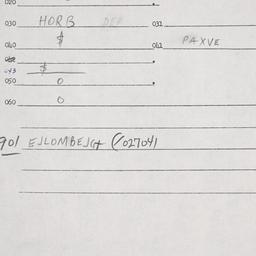 020
030 HORB DEP 031
040 $ 041 PAXVE
043 $
050 0
060 0
901 EJLOMBEJGT (/02704)